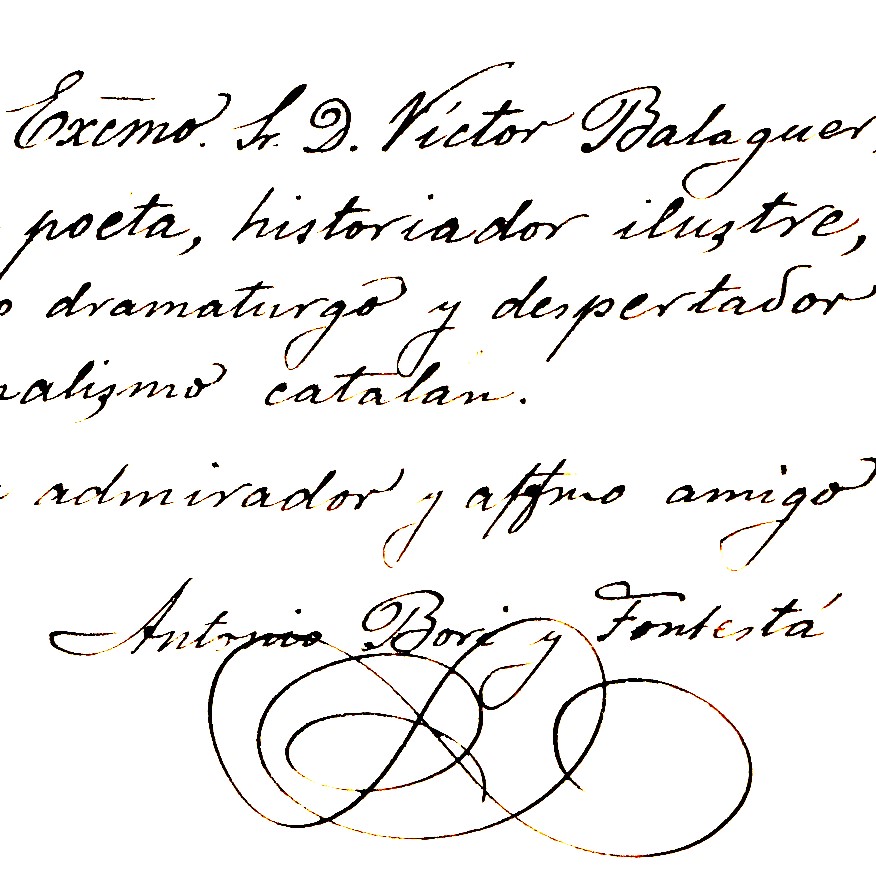 Excmo. Sr. D. Víctor Balaguer,
poeta, historiador ilustre,
o dramaturgo y despertador
nalismo catalan.
admirador y affmo amigo
Antonio Bori y Fontestá